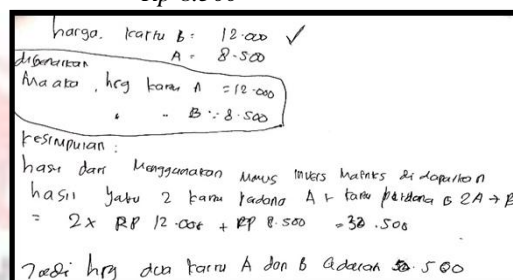 Rp 8.500
harga kartu B = 12.000 ✓
A = 8.500
Maaka, hrg kartu A = 12.000
" " B = 8.500
kesimpulan :
hasil dari Menggunakan invers Matriks di dapatkan
hasil yaitu 2 kartu A + kartu perdana B 2A +
= 2 x RP 12.000 + RP 8.500 = 32.500
Jadi hrg dua kartu A dan B adalah 32.500